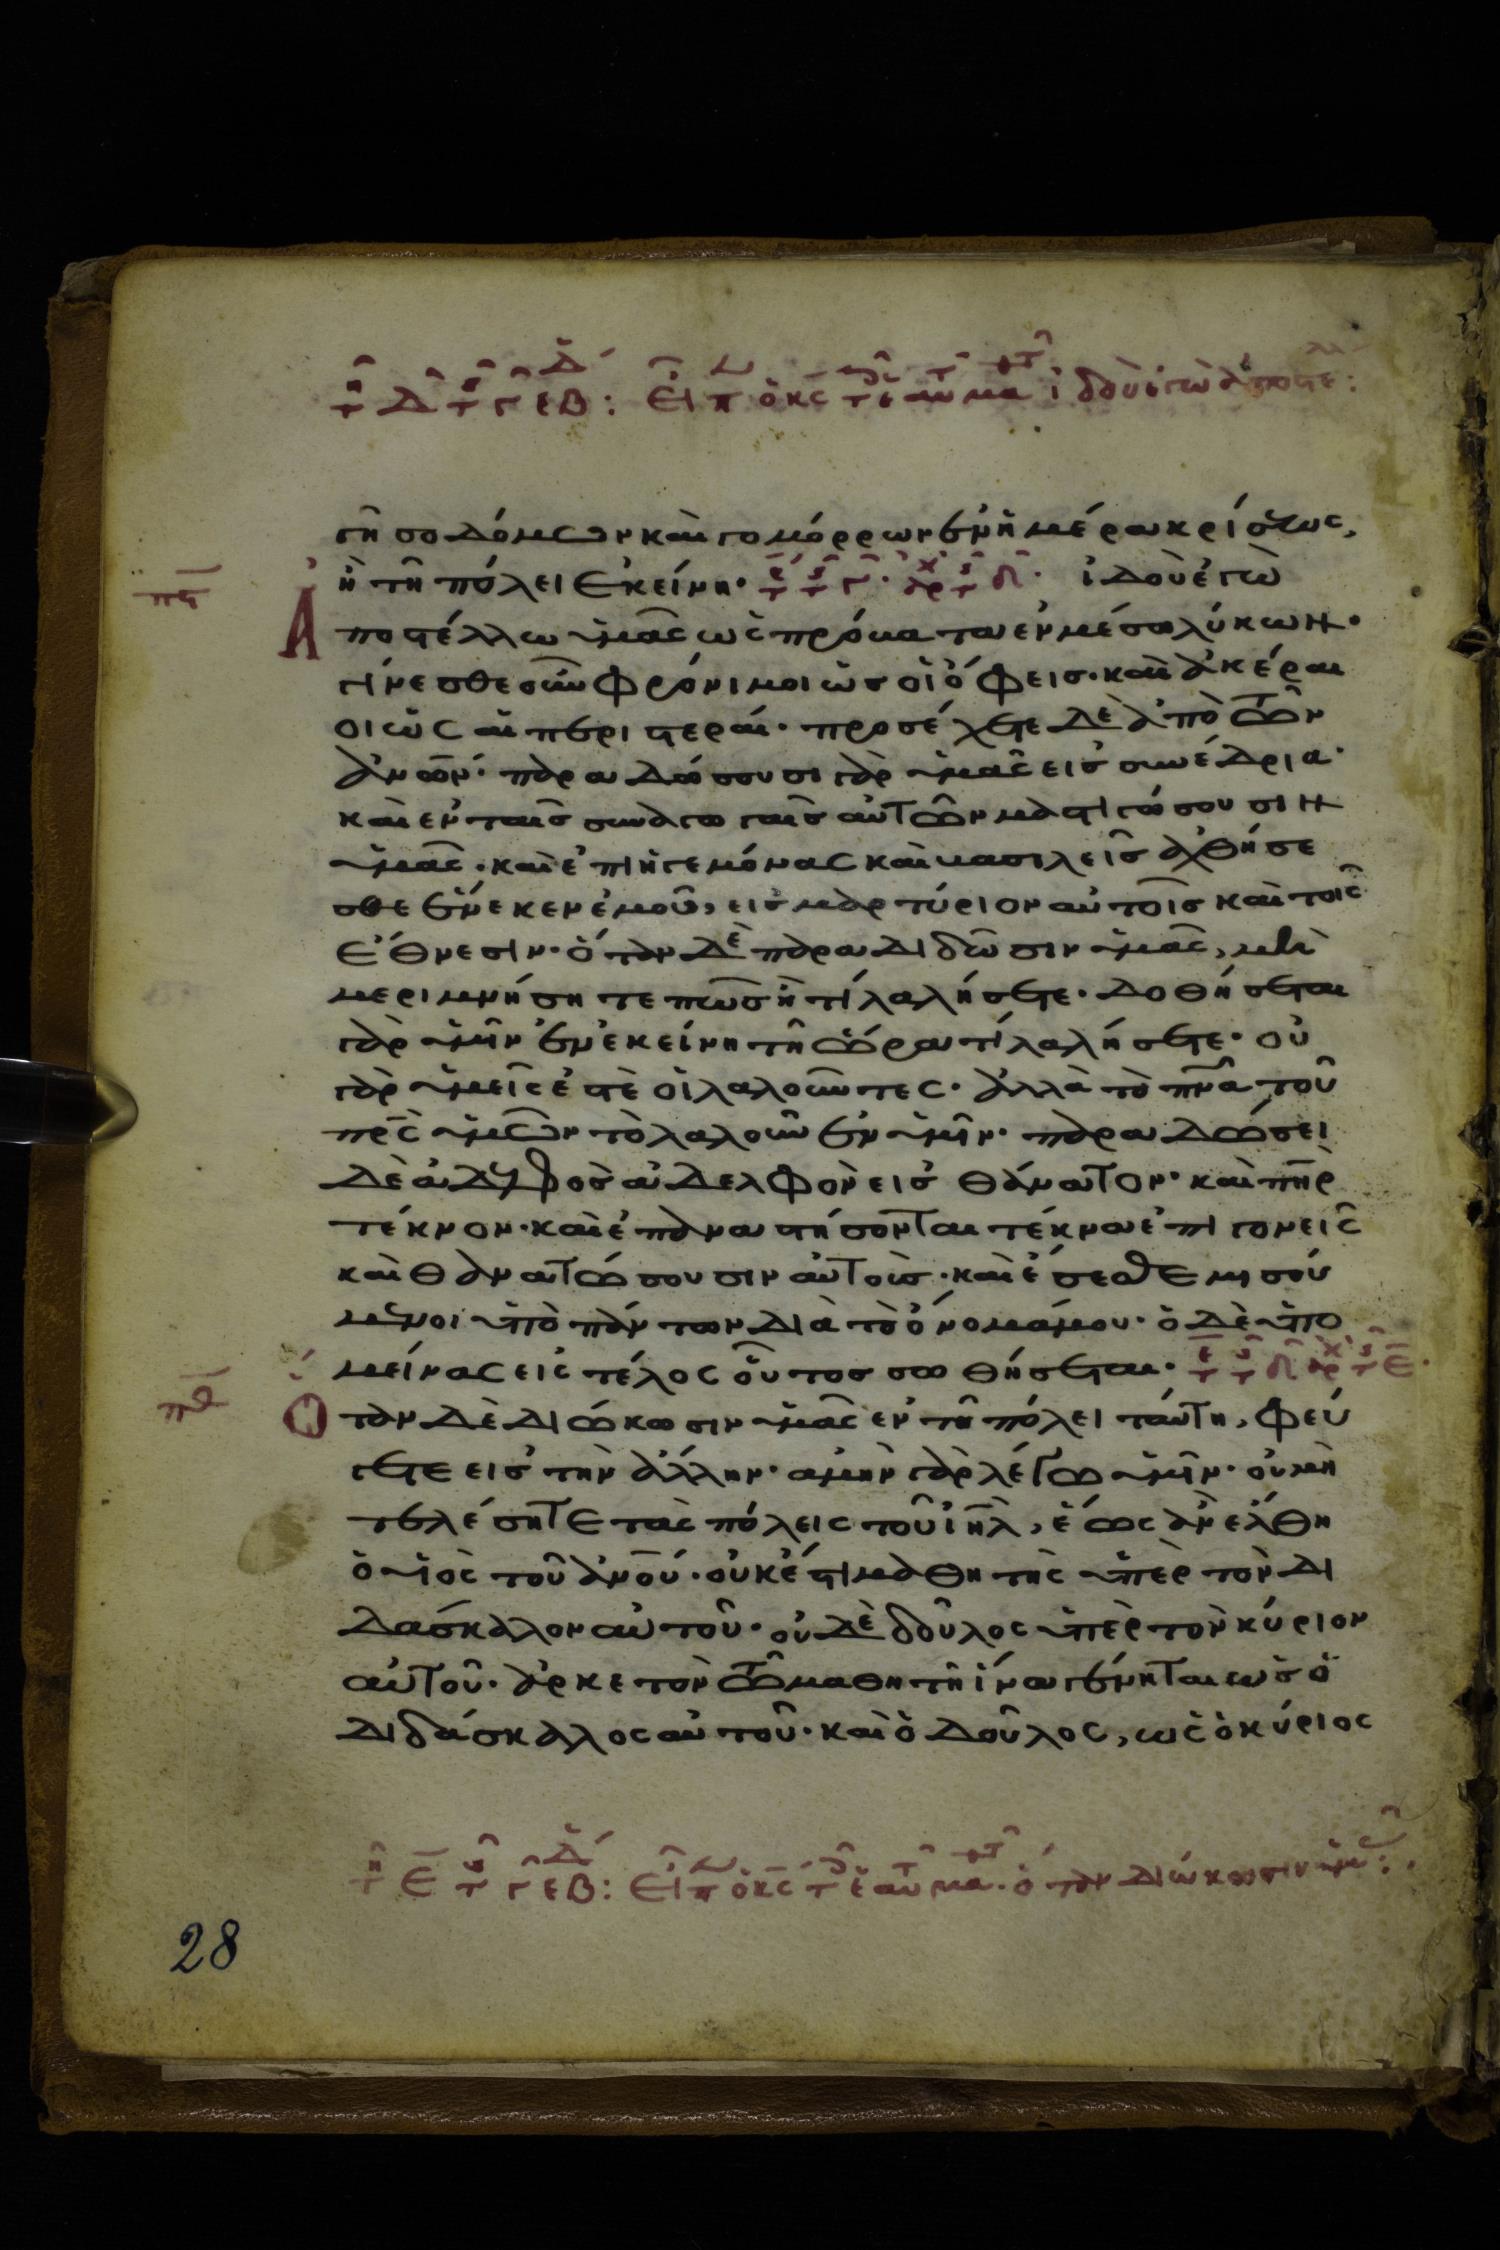 γῆ σοδόμων καὶ γομόρρων ἐν ἡμέρα κρίσεως,
ἢ τῆ πόλει ἐκείνη· ἰδοὺ ἐγὼ
πη
Ἀποστέλλω ὑμᾶς ὡς πρόβατα ἐν μέσω λύκων·
γίνεσθε οὖν φρόνιμοι ὡς οἱ ὄφεις· καὶ ἀκέραι
οι ὡς αἱ περιστεραί· προσέχετε δὲ ἀπὸ τῶν
ἀνων· παραδώσουσι γὰρ ὑμᾶς εἰς συνέδρια·
καὶ ἐν ταῖς συναγωγαῖς αὐτῶν μαστιγώσουσιν
ὑμᾶς· καὶ ἐπὶ ἡγεμόνας καὶ βασιλεῖς ἀχθήσε
σθε ἕνεκεν ἐμοῦ, εἰς μαρτύριον αὐτοῖς καὶ τοῖς
ἔθνεσιν· ὅταν δὲ παραδιδῶσιν ὑμᾶς, μὴ
μεριμνήσητε πῶς ἢ τί λαλήσετε· δοθήσεται
γὰρ ὑμῖν ἐν ἐκείνη τῆ ὥρα τί λαλήσετε· οὐ
γὰρ ὑμεῖς ἐστὲ οἱ λαλοῦντες· ἀλλὰ τὸ πνα τοῦ
πρς ὑμῶν τὸ λαλοῦν ἐν ὑμῖν· παραδώσει
δὲ ἀδελφὸς ἀδελφὸν εἰς θάνατον· καὶ πηρ
τέκνον· καὶ ἐπαναστήσονται τέκνα ἐπὶ γονεῖς
καὶ θανατώσουσιν αὐτοὺς· καὶ ἔσεσθε μισού
μενοι ὑπὸ πάντων διὰ τὸ ὄνομά μου· ὁ δὲ ὑπο
μείνας εἰς τέλος οὗτος σωθήσεται·
πθ
Ὅταν δὲ διώκωσιν ὑμᾶς ἐν τῆ πόλει ταύτη, φεύ
γετε εἰς τὴν ἄλλην· ἀμὴν γὰρ λέγω ὑμῖν· οὐ μὴ
τελέσητε τὰς πόλεις τοῦ ιηλ, ἕως ἂν ἔλθη
ὁ υἱὸς τοῦ ἀνου· οὐκ ἔστι μαθητὴς ὑπὲρ τὸν δι
δάσκαλον αὐτοῦ· οὐδὲ δοῦλος ὑπὲρ τὸν κύριον
αὐτοῦ· ἀρκετὸν τῶ μαθητῆ ἵνα γένηται ὡς ὁ
διδάσκαλος αὐτοῦ· καὶ ὁ δοῦλος, ὡς ὁ κύριος
28